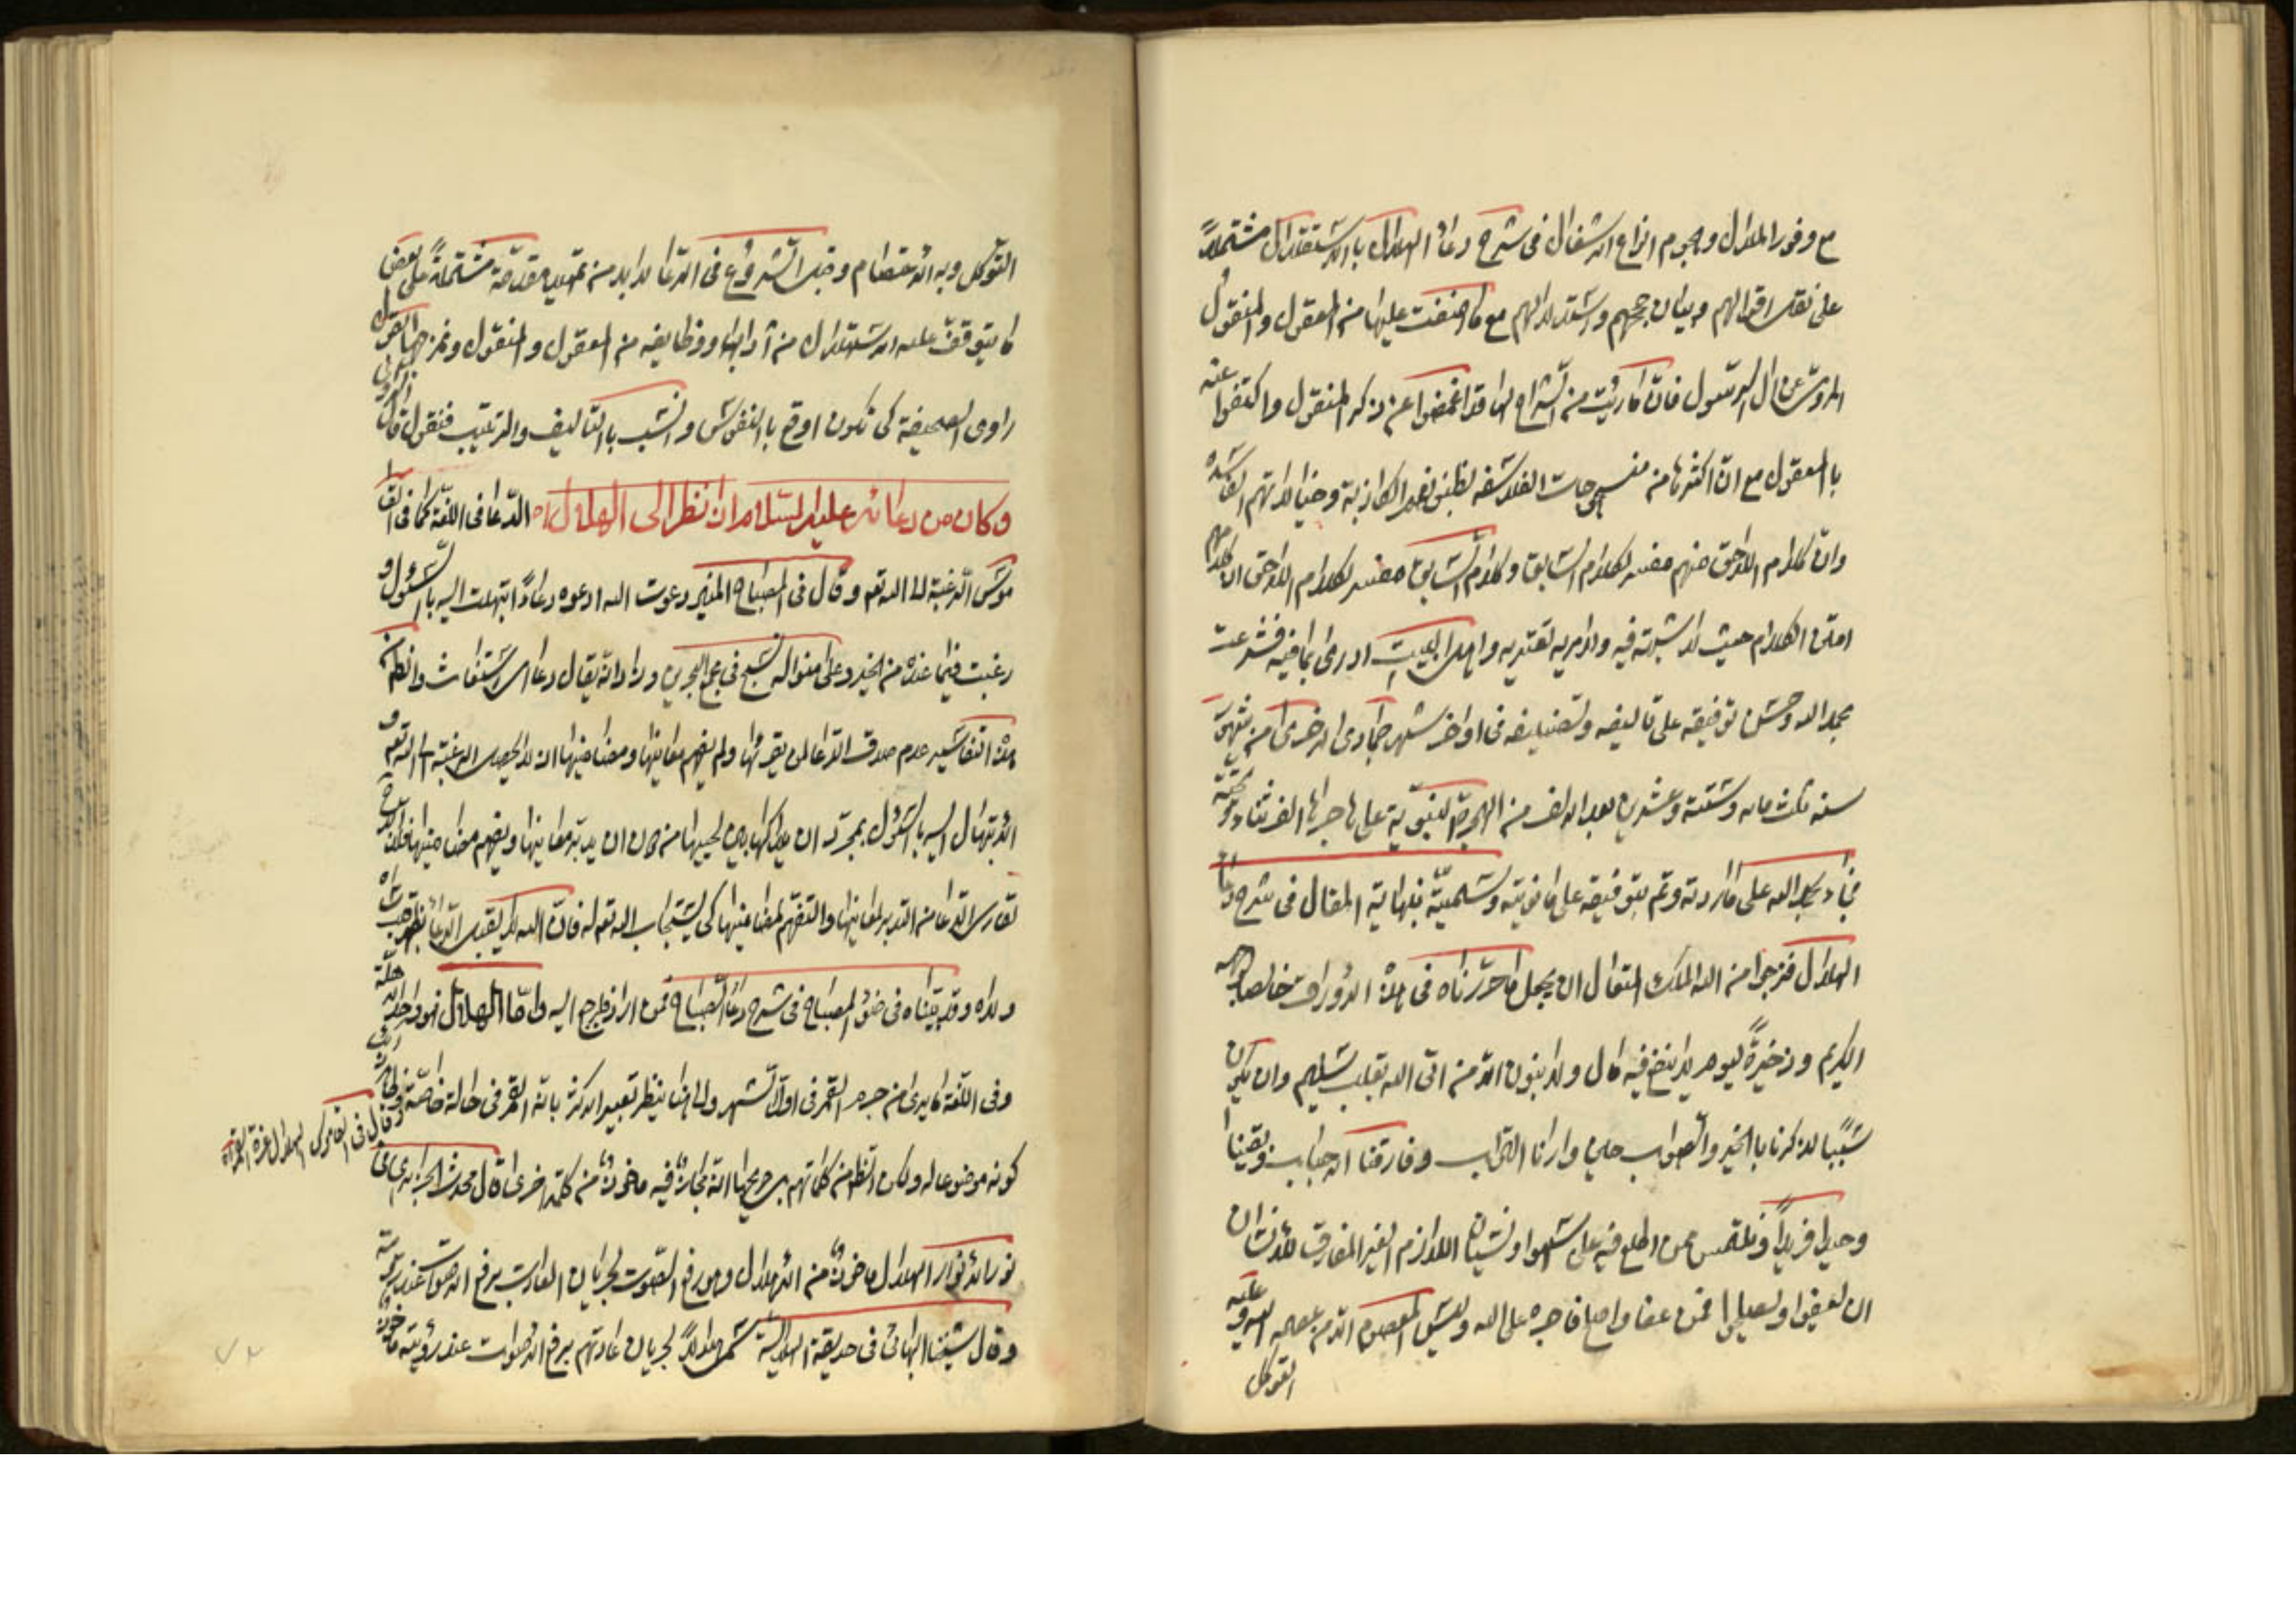 مع وفور الملال وهجوم انواع الاشغال فى شرح دعاء الهلال بالاستقلال مشتملاً
على نقل اقوالهم وبيان حججهم واستدلالهم مع ما اضفت عليها من المعقول والمنقول
المروى عن آل الرسول فان ما رئيت من الشراح لها قد اغمضوا عن ذكر المنقول واكتفوا عنه
بالمعقول مع ان اكثرها من منسوجات الفلاسفه لظنونهم الكاذبة وخيالاتهم الفاسده
وان كلام اللاحق منهم مفسر لكلام السابق وكلام السابق مفسر لكلام اللاحق
الكلام حيث لا شبهة فيه ولا مرية تعتريه واهل البيت ادرى بما فيه فشرعت
بحمد الله وحسن توفيقه على تاليفه وتصنيفه فى اواخر شهر جمادى الاخرى من شهور
سنه ثلث مائه وستة وعشرين بعد الالف من الهجرة النبوية على هاجرها الف ثناء وتحية
فجاء بحمد الله على ما اردته وتم بتوفيقه على ما نويته وسميته بنهاية المقال فى شرح دعاء
الهلال فنرجوا من الله الملك المتعال ان يجعل ما حررناه فى هذه الاوراق خالصا لوجهه
الكريم وذخيرةً ليوم لا ينفع فيه مال ولا بنون الا من اتى الله بقلب سليم وان يكون
سببًا لذكرنا بالخير والصواب حين وارانا التراب وفارقنا الاحباب وبقينا
وحيدا فريدًا ونلتمس ممن اطلع فيه على سهو او نسيان اللازم الغير المفارق للانسان
ان يعفوا ويصلح فمن عفا واصلح فاجره على الله وليس المعصوم الا من عصمه الله وعليه
التوكل
التوكل وبه الاعتصام وقبل الشروع فى الدعا لابد من تمهيد مقدمة مشتملة على بعض
ما يتوقف عليه الاستهلال من آدابها ووظايفه من المعقول والمنقول
راوى الصحيفة كى تكون اوقع بالنفوس وانسب بالتاليف والترتيب فنقول قال
وكان من دعائه عليه السلام اذا نظر الى الهلال الدعا فى اللغة كما فى القا
موس الرغبة الى الله تع وقال فى المصباح المنير دعوت الله ادعوه دعاءً ابتهلت اليه بالسئول و
رغبت فيما عنده من الخير وعلى منواله نسج فى مجمع البحرين وزاد انه يقال دعا اى استغاث والظاهر من
هذه التفاسير عدم صدق الدعا لمن يقرئها ولم يفهم معانيها ومضامينها اذ لا يحصل الرغبة الى الله تع و
الابتهال اليه بالسئول بمجرد ان يحركها بين لحييها من دون ان يتدبر معانيها ويفهم مضامينها فلابد
لقارى الدعا من التدبر لمعانيها والتفهم لمضامينها كى يستجاب الله تع له فان الله لا يقبل الدعاء بظهر قلب ساه
ولاه وقد بيناه فى ضوء المصباح فى شرح دعاء الصباح فمن اراد فليرجع اليه واما الهلال فهو واحد الاهلة
وفى اللغة ما يرى من جرم القمر فى اول الشهر والى هذا ينظر تعبير الاكثر بانه القمر فى حالة خاصة
كونه موضوعا له ولكن الظاهر من كلماتهم بل صريحها انه مجاز فيه ماخوذ من كلمة اخرى قال محدث الجزائرى فى
نور الانوار الهلال ماخوذ من الاهلال وهو رفع الصوت لجريان العادت برفع الاصوات عند رؤيته
وقال شيخنا البهائى فى حديقة الهلالية سمى هلالاً لجريان عادتهم برفع الاصوات عند رؤيته ماخوذ
وقال فى القاموس الهلال غرة القمر